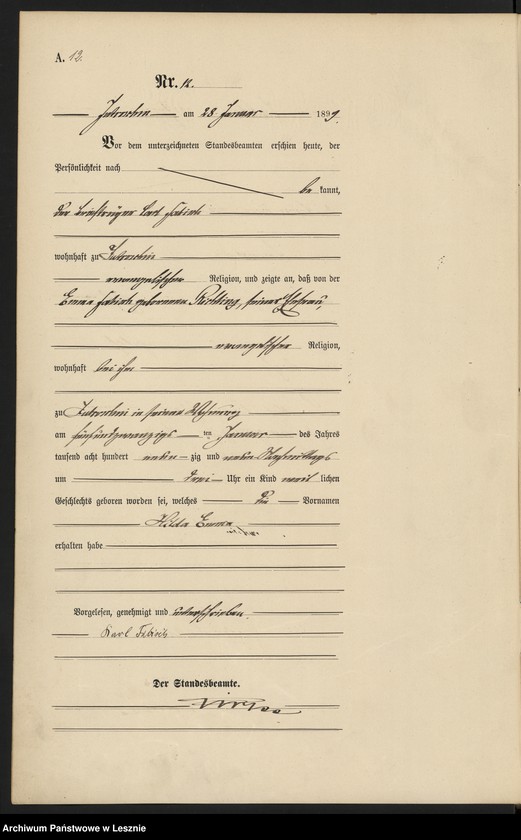 A. 12.
Nr. 12.
Jutroschin am 28 Januar 1899.
Vor dem unterzeichneten Standesbeamten erschien heute, der
Persönlichkeit nach
be kannt,
der Briefträger Carl
wohnhaft zu Jutroschin
evangelischer Religion, und zeigte an, daß von der
Emma geborenen seiner Ehefrau,
evangelischer Religion,
wohnhaft bei ihm
zu Jutroschin in seiner Wohnung
am fünfundzwanzigs ten Januar des Jahres
tausend acht hundert neun zig und neun Nachmittags
um drei Uhr ein Kind weib lichen
Geschlechts geboren worden sei, welches die Vornamen
Hilda Emma
erhalten habe
Vorgelesen, genehmigt und unterschrieben.
Karl
Der Standesbeamte.
Archiwum Państwowe w Lesznie